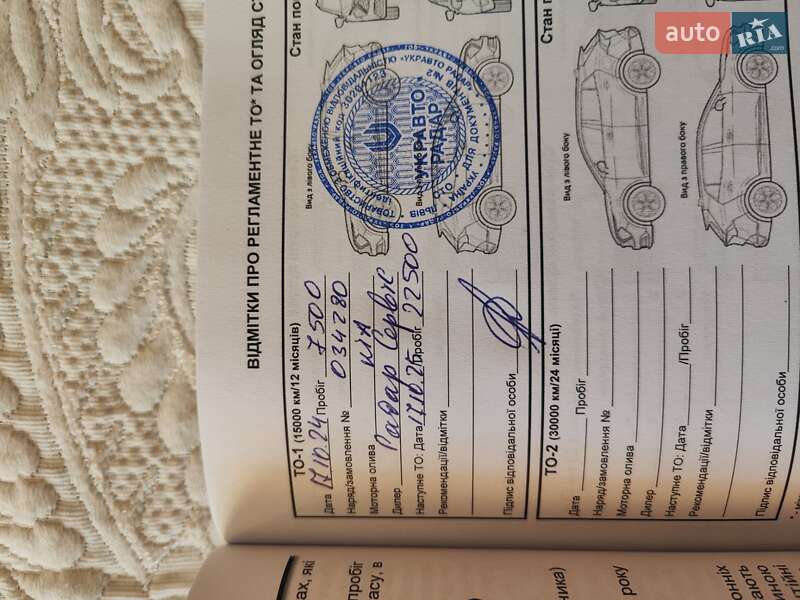 auto RIA
ВІДМІТКИ ПРО РЕГЛАМЕНТНЕ ТО* ТА ОГЛЯД СТ
ТО-1 (15000 км/12 місяців)
Дата 17.10.24 Пробіг 7500
Наряд/замовлення № 034280
Моторна олива КІА
Дилер Радар Сервіс
Наступне ТО: Дата 17.10.25 /Пробіг 22500
Рекомендації/відмітки
Підпис відповідальної особи
Стан по
Вид з лівого боку
Ви
ТОВАРИСТВО З ОБМЕЖЕНОЮ ВІДПОВІДАЛЬНІСТЮ «УКРАВТО РАДАР»
УКРАЇНА * ЛЬВІВ
Ідентифікаційний код
УКРАВТО
РАДАР
ДЛЯ ДОКУМЕНТІВ №2
СТО
ТО-2 (30000 км/24 місяці)
Дата Пробіг
Наряд/замовлення №
Моторна олива
Дилер
Наступне ТО: Дата /Пробіг
Рекомендації/відмітки
Підпис відповідальної особи
Стан п
Вид з лівого боку
Вид з правого боку
ах, які
пробіг
асу, в
ника)
року
онніх
ають
иною
тійні